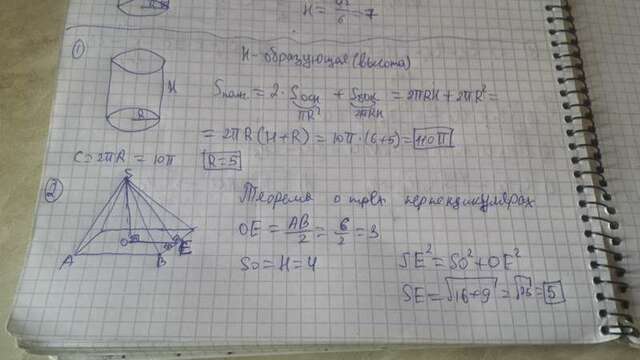 H = 42/6 = 7
① H - образующая (высота)
H
R
Sполн = 2 · Sосн + Sбок = 2πRH + 2πR² =
πR² 2πRH
= 2πR (H + R) = 10π · (6+5) = 110π
C = 2πR = 10π R = 5
② Теорема о трёх перпендикулярах
S
O
E
A
B
OE = AB/2 = 6/2 = 3
SO = H = 4
SE² = SO² + OE²
SE = √16+9 = √25 = 5